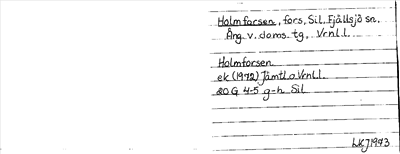 Holmforsen, fors, Sil, Fjällsjö sn.
Ång. v. doms. tg, Vrnl.l.
Holmforsen
ek (1972) Jämtl.o.Vrnl.l.
20 G 4-5 g-h Sil
LKJ 1973